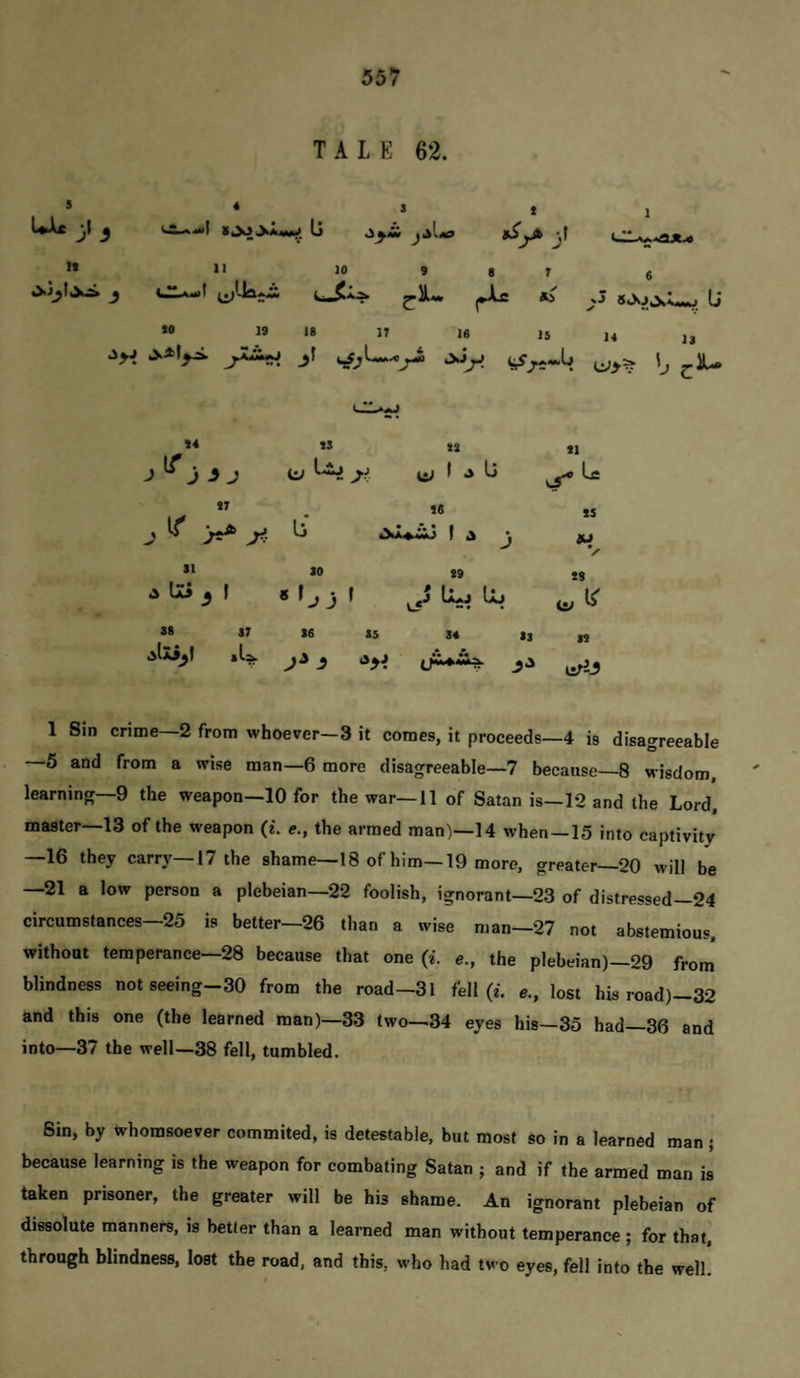 557
TALE 62.
5 4 3 2 1
معصیت از هرکه صادر شود نا پسندیده است و از علما
12 11 10 9 8 7 6
نا پسندیده تر که علم سلاح جنگ شیطان است و خداوند
20 19 18 17 16 15 14 13
سلاح را چون باسیری برند شرمساری او بیشتر خواهد بود
بیت
24 23 22 21
عامی نادان پریشان روزگار
27 26 25
به ز دانشمند نا پرهیزکار
31 30 29 28
کان بنا بینائی از راه اوفتاد
38 37 36 35 34 33 32
وین دو چشمش بود و در چاه اوفتاد
1 Sin crime—2 from whoever—3 it comes, it proceeds—4 is disagreeable
—5 and from a wise man—6 more disagreeable—7 because—8 wisdom,
learning—9 the weapon—10 for the war—11 of Satan is—12 and the Lord,
master—13 of the weapon (i. e., the armed man)—14 when—15 into captivity
—16 they carry—17 the shame—18 of him—19 more, greater—20 will be
—21 a low person a plebeian—22 foolish, ignorant—23 of distressed—24
circumstances—25 is better—26 than a wise man—27 not abstemious,
without temperance—28 because that one (i. e., the plebeian)—29 from
blindness not seeing—30 from the road—31 fell (i. e., lost his road)—32
and this one (the learned man)—33 two—34 eyes his—35 had—36 and
into—37 the well—38 fell, tumbled.
Sin, by whomsoever commited, is detestable, but most so in a learned man ;
because learning is the weapon for combating Satan ; and if the armed man is
taken prisoner, the greater will be his shame. An ignorant plebeian of
dissolute manners, is better than a learned man without temperance ; for that,
through blindness, lost the road, and this, who had two eyes, fell into the well.